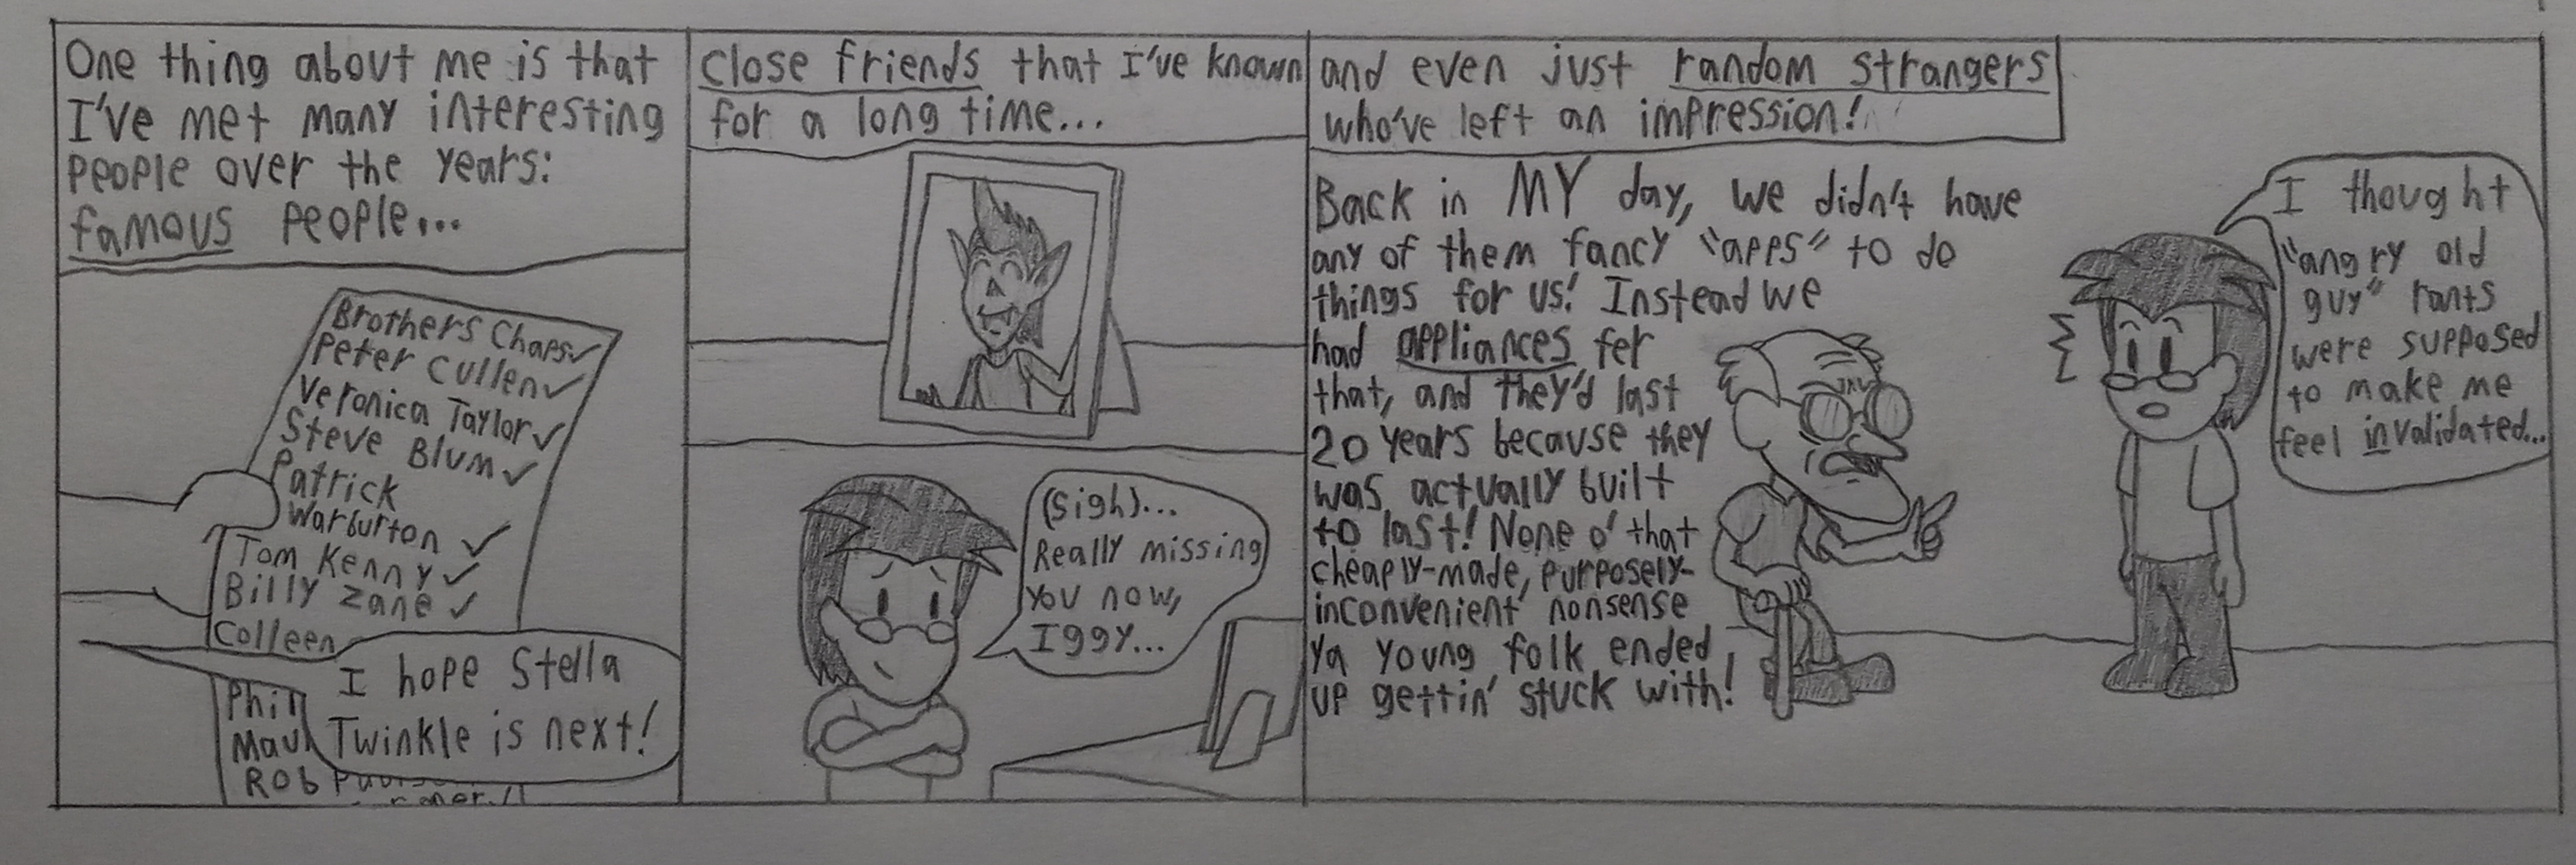 One thing about me is that
I've met many interesting
people over the years:
famous people...
Brothers Chaps✓
Peter Cullen✓
Veronica Taylor✓
Steve Blum✓
Patrick
Warburton ✓
Tom Kenny✓
Billy Zane ✓
Colleen
Phil
Mau
Rob
I hope Stella
Twinkle is next!
close friends that I've known
for a long time...
(sigh)...
Really missing
you now,
Iggy...
and even just random strangers
who've left an impression!
Back in MY day, we didn't have
any of them fancy "apps" to do
things for us! Instead we
had appliances fer
that, and they'd last
20 years because they
was actually built
to last! None o' that
cheaply-made, purposely-
inconvenient nonsense
ya young folk ended
up gettin' stuck with!
I thought
"angry old
guy" rants
were supposed
to make me
feel invalidated...